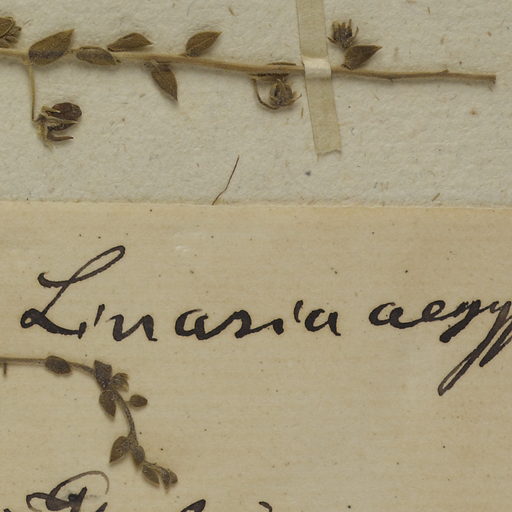 Linaria aegyp